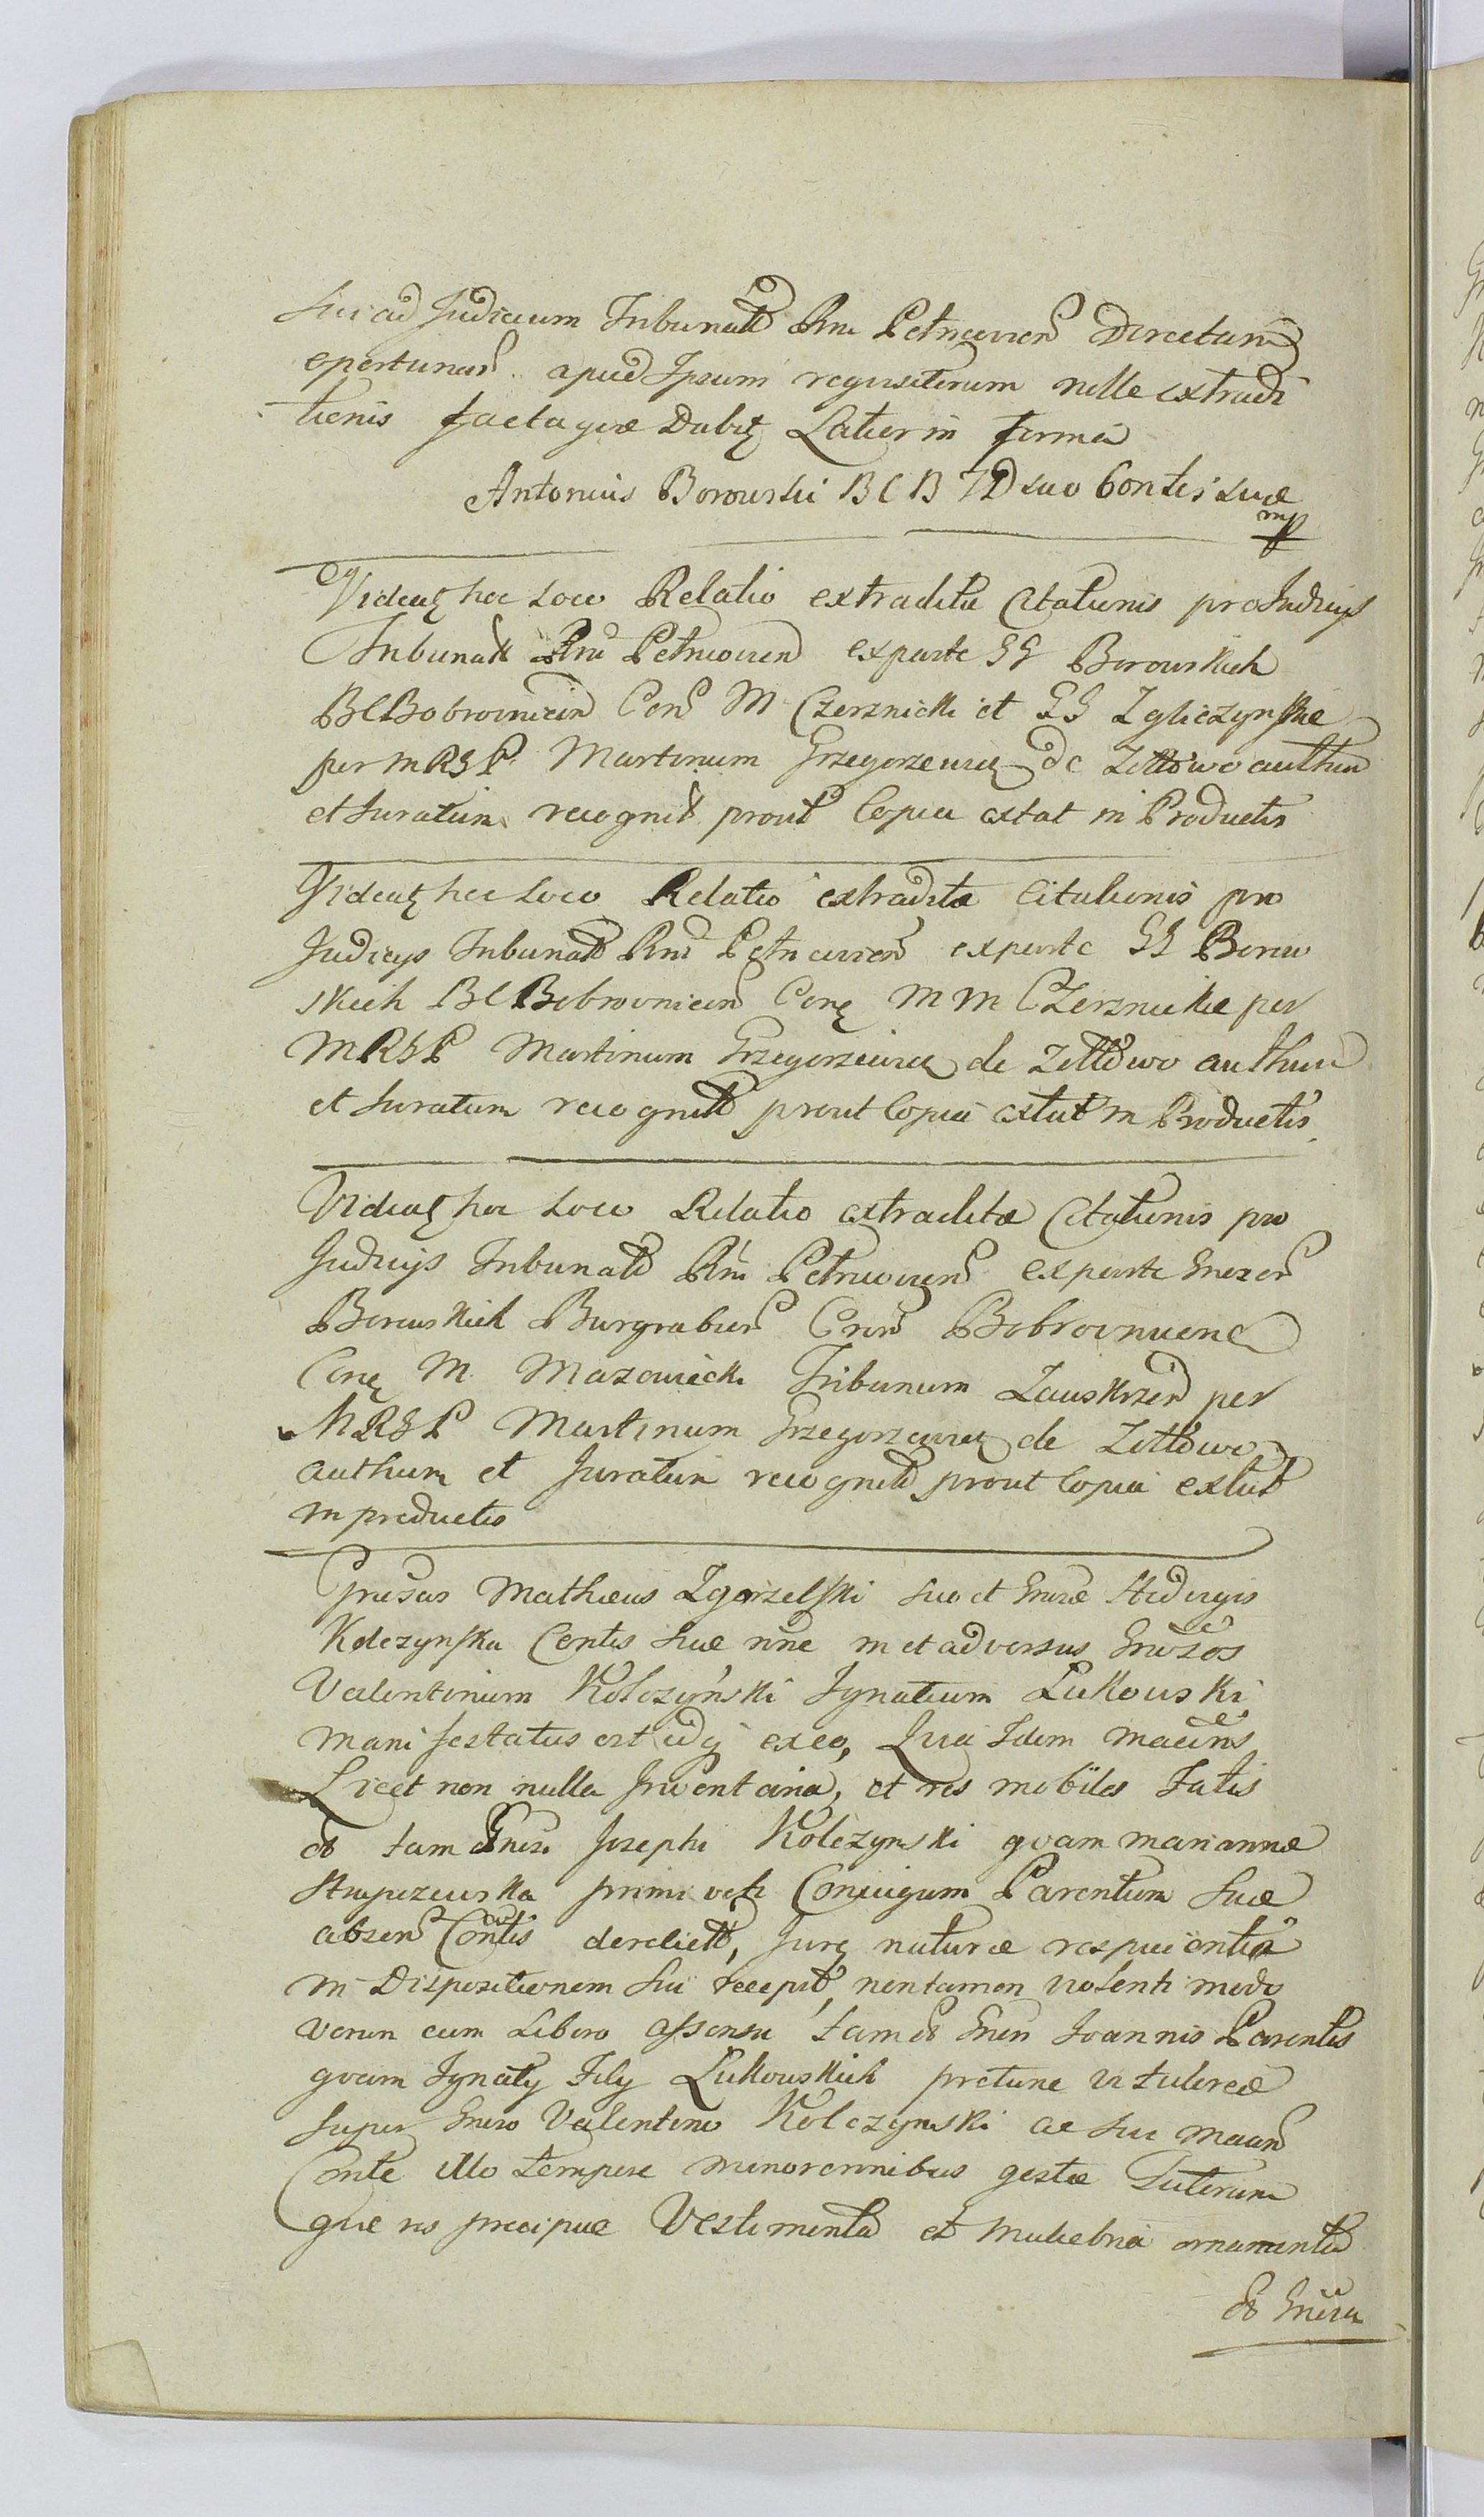 sui ad Judicium Tribunatt Rni Petricovien Directam
oportunas apud Ipsum requisiturum nille extradi
tionis facta quae Dabitz Latior in forma
Antonius Borowski B C B ZD suo Contis suae
mp
Videatz hoc Loco Relatio extraditae Citationis pro Judicijs
Tribunatt Rni Petricovien ex parte GG Borowskich
BC Bobrovnicen Con M Czerznicki et GG Zgliczynskie
per MRGP Martinum Grzegorzewicz de Zottowo authen
et Juratum recognit prout Copia extat in Productis
Videatz hoc Loco Relatio extraditae Citationis pro
Judicijs Tribunatt Rni Petricovien ex parte GG Borow
skich BC Bobrovnicen Conz M M Czerznickie per
MRGP Martinum Grzegorzewicz de Zottowo authen
et Juratum recognitt prout Copia extat in Productis
Videatz hoc Loco Relatio extraditae Citationis pro
Judicijs Tribunatt Rni Petricovien ex parte Gnezor
Borowskich Burgrabior Cren Bobrovnicen
Conz M Mazowiecki Tribunum Zauskrzen per
MRGP Martinum Grzegorzewicz de Zottowo
authum et Juratum recognitt prout Copia extat
in productis
Gnesus Mathaeus Zgorzelski suo et Gnesae Hedvigis
Kolczynska Contis suae nne in et adversus Gnosos
Valentinum Kolczyński Ignatium Lukowski
manifestatus est idq ex eo, Quia Idem maans
Licet non nulla Inventaria, et res mobiles Fatis
ob tam Gnesi Josephi Kolczynski quam Mariannae
Strupczewska primi voti Conjugum Parentum suae
absen Contis derelictt, Jure naturae respicientia
in Dispositionem sui recepit, non tamen violenti modo
verum cum Libero assensu tam ob Gnen Joannis Parentis
quam Ignatij Filij Lukowskich pro tunc ut tutorea
super Gneso Valentino Kolczynski ac sui maan
Conte illo tempore minorennibus gestae Tutorum
quae res praecipue Vestimenta et muliebria ornamenta
ob Gnesa